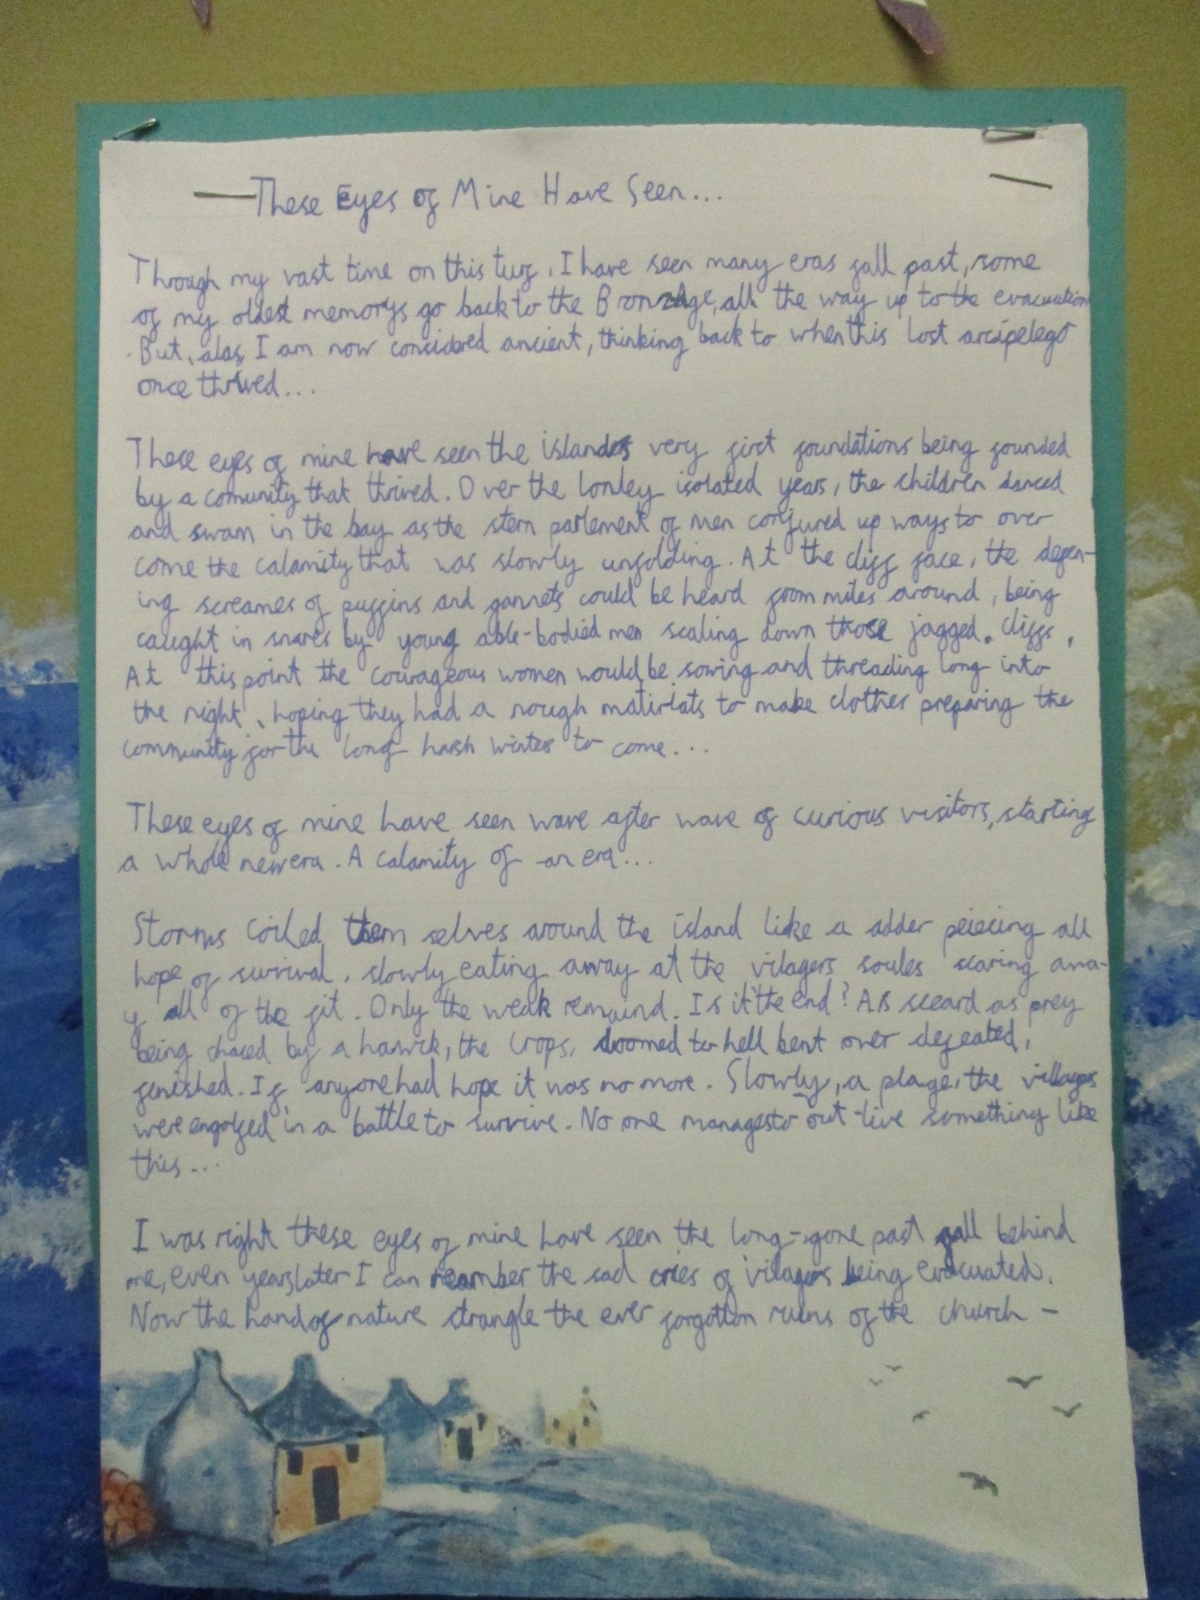 These Eyes of Mine Have Seen...
Through my vast time on this turf, I have seen many eras fall past, some
of my oldest memorys go back to the Bronze Age, all the way up to the evacuation
. But, alas, I am now considered ancient, thinking back to when this lost arcipelego
once thrived...
These eyes of mine have seen the islands very first foundations being founded
by a comunity that thrived. Over the lonley isolated years, the children danced
and swam in the bay as the stern parlement of men conjured up ways to over
come the calamity that was slowly unfolding. At the cliff face, the defen-
ing screames of puffins and gannets could be heard from miles around, being
caught in snares by young able-bodied men scaling down those jagged. cliffs.
At this point the courageous women would be sowing and threading long into
the night, hoping they had a nough matirials to make clothes preparing the
community for the long harsh winter to come...
These eyes of mine have seen wave after wave of curious visitors, starting
a whole new era. A calamity of an era...
Storms coiled them selves around the island like a adder peircing all
hope of survival. slowly eating away at the vilagers soules scaring awa-
y all of the fit. Only the weak remaind. Is it the end? As sceard as prey
being chaced by a hawck, the crops, doomed to hell bent over defeated,
fenished. If anyone had hope it was no more. Slowly, a plage, the villages
were engolfed in a battle to survive. No one manages to out-live something like
this...
I was right these eyes of mine have seen the long-gone past fall behind
me, even years later I can reamber the sad cries of vilagers being evacuated.
Now the hand of nature strangle the ever forgotton ruins of the church -